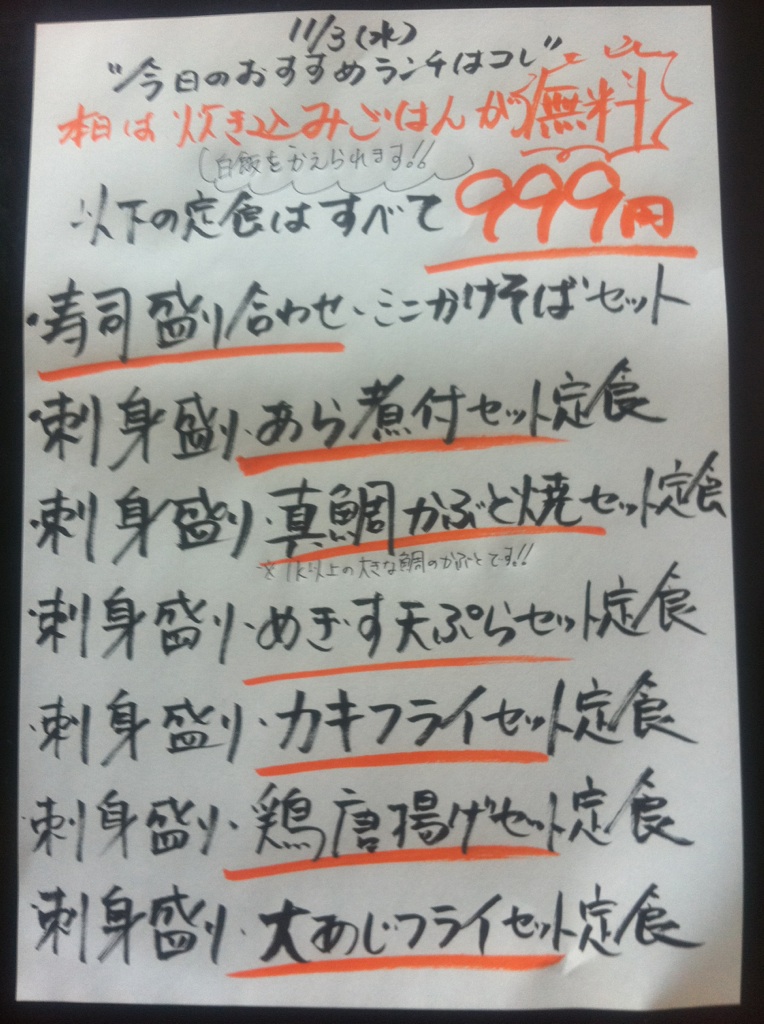 11/3(水)
"今日のおすすめランチはコレ"
本日は炊き込みごはんが無料
(白飯をかえられます!!
以下の定食はすべて999円
・寿司盛り合わせ・ミニかけそばセット
・刺身盛り・あら煮付セット定食
・刺身盛り・真鯛かぶと焼セット定食
※1k以上の大きな鯛のかぶとです!!
・刺身盛り・めぎす天ぷらセット定食
・刺身盛り・カキフライセット定食
・刺身盛り・鶏唐揚げセット定食
・刺身盛り・大あじフライセット定食